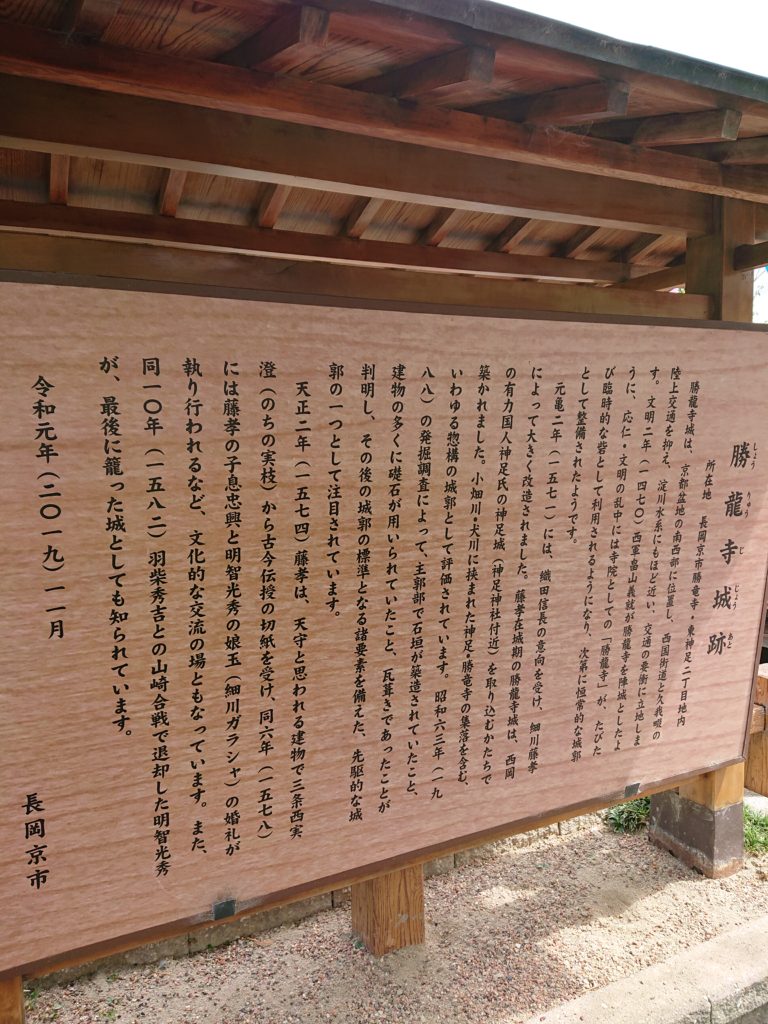 勝龍寺城跡
しょうりゅうじじょうあと
所在地 長岡京市勝竜寺・東神足二丁目地内
勝龍寺城は、京都盆地の南西部に位置し、西国街道と久我畷の
陸上交通を抑え、淀川水系にもほど近い、交通の要衝に立地しま
す。文明二年（一四七〇）西軍畠山義就が勝龍寺を陣城としたよ
うに、応仁・文明の乱中には寺院としての「勝龍寺」が、たびた
び臨時的な砦として利用されるようになり、次第に恒常的な城郭
として整備されたようです。
元亀二年（一五七一）には、織田信長の意向を受け、細川藤孝
によって大きく改造されました。藤孝在城期の勝龍寺城は、西岡
の有力国人神足氏の神足城（神足神社付近）を取り込むかたちで
築かれました。小畑川・犬川に挟まれた神足・勝竜寺の集落を含む、
いわゆる惣構の城郭として評価されています。昭和六三年（一九
八八）の発掘調査によって、主郭部で石垣が築造されていたこと、
建物の多くに礎石が用いられていたこと、瓦葺きであったことが
判明し、その後の城郭の標準となる諸要素を備えた、先駆的な城
郭の一つとして注目されています。
天正二年（一五七四）藤孝は、天守と思われる建物で三条西実
澄（のちの実枝）から古今伝授の切紙を受け、同六年（一五七八）
には藤孝の子息忠興と明智光秀の娘玉（細川ガラシャ）の婚礼が
執り行われるなど、文化的な交流の場ともなっています。また、
同一〇年（一五八二）羽柴秀吉との山崎合戦で退却した明智光秀
が、最後に籠った城としても知られています。
令和元年（二〇一九）一一月
長岡京市